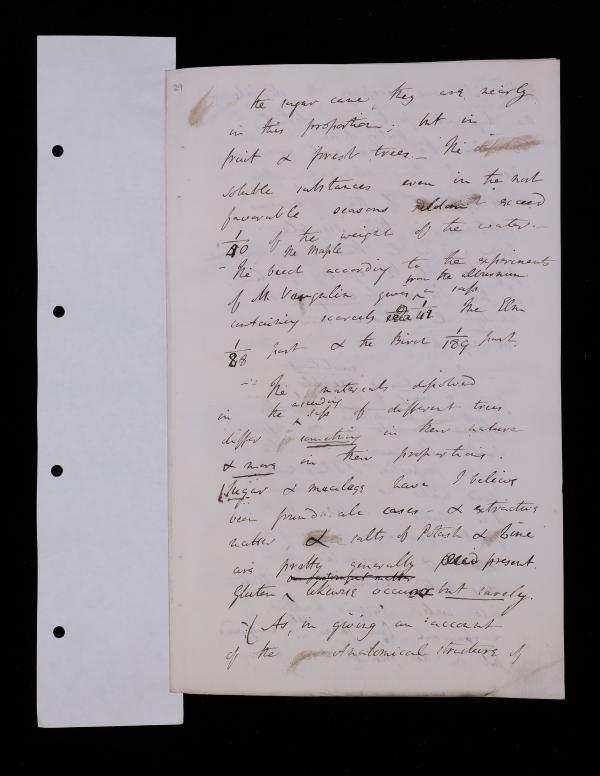 29
the sugar cane, they are nearly
in this proportion; but in
fruit & forest trees. — The
soluble substances even in the most
favorable seasons seldom exceed
1/40 of the weight of the water. —
The Maple
— The beech according to the experiments
from the alburnum
of M. Vauquelin gives a sap
containing scarcely 1/42 The Elm
1/28 part & the Birch 1/189 part.
— The materials dissolved
ascending
in the sap of different trees
differ something in their nature
& more in their proportions.
Sugar & mucilage have I believe
been found in all cases — & extractive
matter & salts of Potash & Lime
are pretty generally present.
Gluten likewise occurs but rarely.
— (As, in giving an account
of the Anatomical structure of